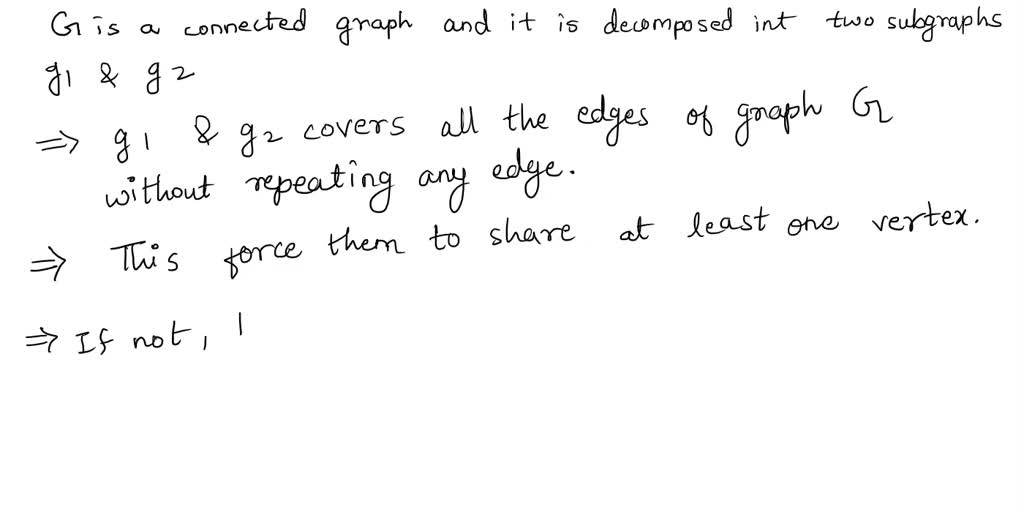 G is a connected graph and it is decomposed int two subgraphs
g1 & g2
⇒ g1 & g2 covers all the edges of graph G
without repeating any edge.
⇒ This force them to share at least one vertex.
⇒ If not, |